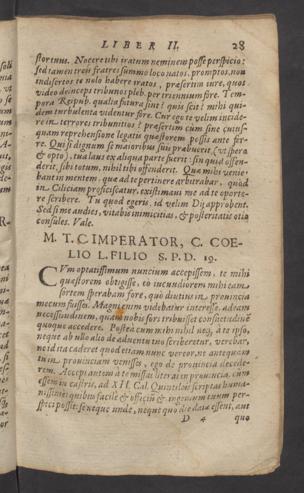 LIBER II. 28
storeuus. Nocere tibi iratum neminem posse perspicio:
sed tamen treis fratres summo loco natos, promptos, non
indisertos te nolo habere iratos, præsertim iure, quos
video deinceps tribunos pleb. per triennium fore. Tem-
pora Reipub. qualia futura sint? quis scit? mihi qui-
dem turbulenta videntur fore. Cur ego te velim incide-
re in terrores tribunitios? præsertim cum sine cuius-
quam reprehensione legatis quæstorem possis ante fer-
re. Qui si dignum se maioribus suis præbuerit, (vt spero
& opto) tua laus ex aliqua parte fuerit: sin quid offen-
derit, sibi totum, nihil tibi offenderit. Quæ mihi venie-
bant in mentem, quæ ad te pertinere arbitrabar, quòd
in Ciliciam proficiscebar, existimaui me ad te oporte-
re scribere. Tu quod egeris, id velim Dij approbent.
Sed si me audies, vitabis inimicitias, & posteritatis otio
consules. Vale.
M. T. C. IMPERATOR, C. COE-
LIO L. FILIO S. P. D. 19.
CVm optatissimum nuncium accepissem, te mihi
quæstorem obtigisse, eò iucundiorem mihi eam
sortem sperabam fore, quò diutius in prouincia
mecum fuisses. Magnum videbatur interesse, ad eam
necessitudinem, quam nobis sors tribuisset consuetudinē
quoque accedere. Postea cum mihi nihil neq; à te ipso,
neque ab ullo alio de aduentu tuo scriberetur, verebar,
ne id ita caderet quod etiam nunc vereor, ne antequam
tu in prouinciam venisses, ego de prouincia decede-
rem. Accepi autem à te missas literas in prouincia, cùm
essem in castris, ad XII. Cal. Quintileis scriptas huma-
nissimè: quibus facilè & officiū & ingenium tuum per-
spici posset: sed neque unde, neque quo die datæ essent, aut
D 4 quo